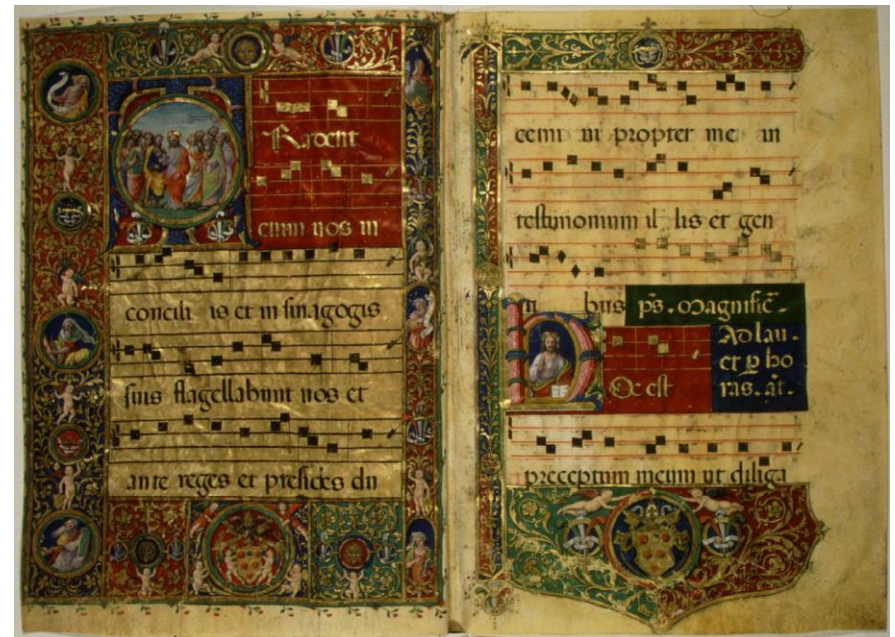 Radent
enim vos in
concili is et in sinagogis
suis flagellabunt vos et
ante reges et presides du
cemi ni propter me in
testimonium il lis et gen
ti bus ps. Magnific̄.
Ad lau.
et p ho
ras. an̄.
Oc est
preceptum meum ut diliga